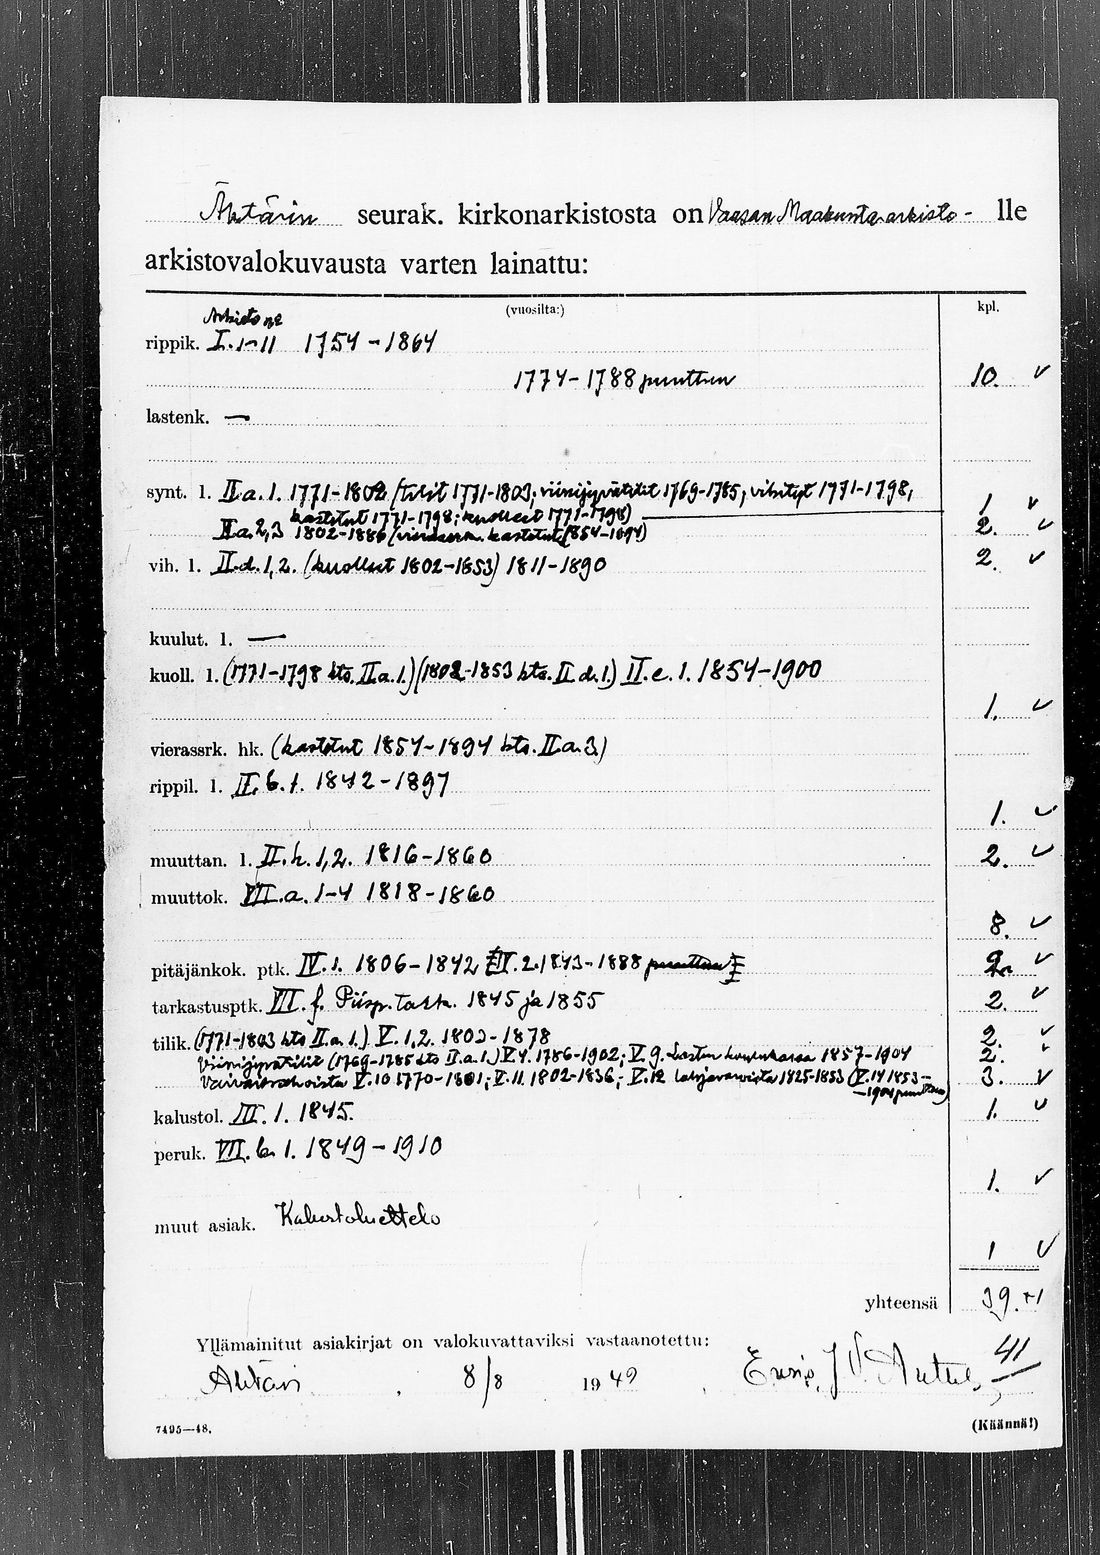 Ähtärin seurak. kirkonarkistosta on Vaasan Maakunta-arkisto- lle
arkistovalokuvausta varten lainattu:
(vuosilta:) kpl.
Arkisto n:o
rippik. I. 1-11 1754-1864
1774-1788 puuttuu 10. ✓
lastenk. —
synt. l. II a. 1. 1771-1802 (tilit 1771-1803; viinijyvätilit 1769-1785; vihityt 1771-1798,
kastetut 1771-1798; kuolleet 1771-1798) 1 ✓
II a. 2,3 1802-1886 (vierassrk. kastetut 1854-1894) 2. ✓
vih. l. II d. 1,2. (kuolleet 1802-1853) 1811-1890 2. ✓
kuulut. l. —
kuoll. l. (1771-1798 kts. II a. 1.) (1802-1853 kts. II d. 1.) II. e. 1. 1854-1900
1. ✓
vierassrk. hk. (kastetut 1854-1894 kts. II a. 3)
rippil. l. II. b. 1. 1842-1897
1. ✓
muuttan. l. II. h. 1,2. 1816-1860 2. ✓
muuttok. VII. a. 1-4 1818-1860
8. ✓
pitäjänkok. ptk. IV. 1. 1806-1842 IV. 2. 1843-1888 puuttuu ✓
tarkastusptk. VII. f. Piisp. tark. 1845 ja 1855 2. ✓
tilik. (1771-1803 kts II. a. 1.) V. 1,2. 1802-1878 2. ✓
Viinijyvätilit (1769-1785 kts II. a. 1.) V. 4. 1786-1902; V. 9. Lasten koulukassa 1857-1904 2. ✓
Vaivaisrahoista V. 10 1770-1801; V. 11. 1802-1836; V. 12 1825-1853 (V. 14 1853- 3. ✓
-1904 puuttuu)
kalustol. III. 1. 1845. 1. ✓
peruk. VII. b. 1. 1849-1910
1. ✓
muut asiak. Kalustoluettelo
1 ✓
yhteensä 39. +1
Yllämainitut asiakirjat on valokuvattaviksi vastaanotettu: 41
Ähtäri 8/8 1949
7495—48. (Käännä!)